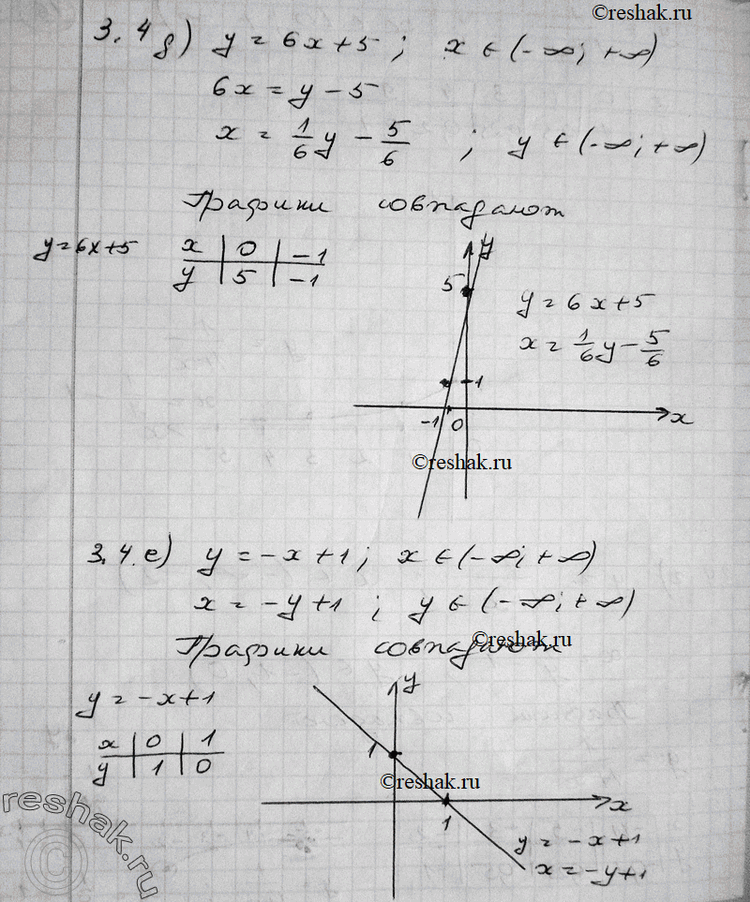 ©reshak.ru
3.4 д) y = 6x + 5 ; x ∈ (-∞; +∞)
6x = y - 5
x = 1/6 y - 5/6 ; y ∈ (-∞; +∞)
Графики совпадают
y = 6x + 5
x | 0 | -1
y | 5 | -1
y
5
y = 6x + 5
x = 1/6 y - 5/6
1
-1 0 x
©reshak.ru
3.4. е) y = -x + 1 ; x ∈ (-∞; +∞)
x = -y + 1 ; y ∈ (-∞; +∞)
©reshak.ru
Графики совпадают
y = -x + 1
x | 0 | 1
y | 1 | 0
y
1
©reshak.ru
x
1
y = -x + 1
x = -y + 1
reshak.ru
©